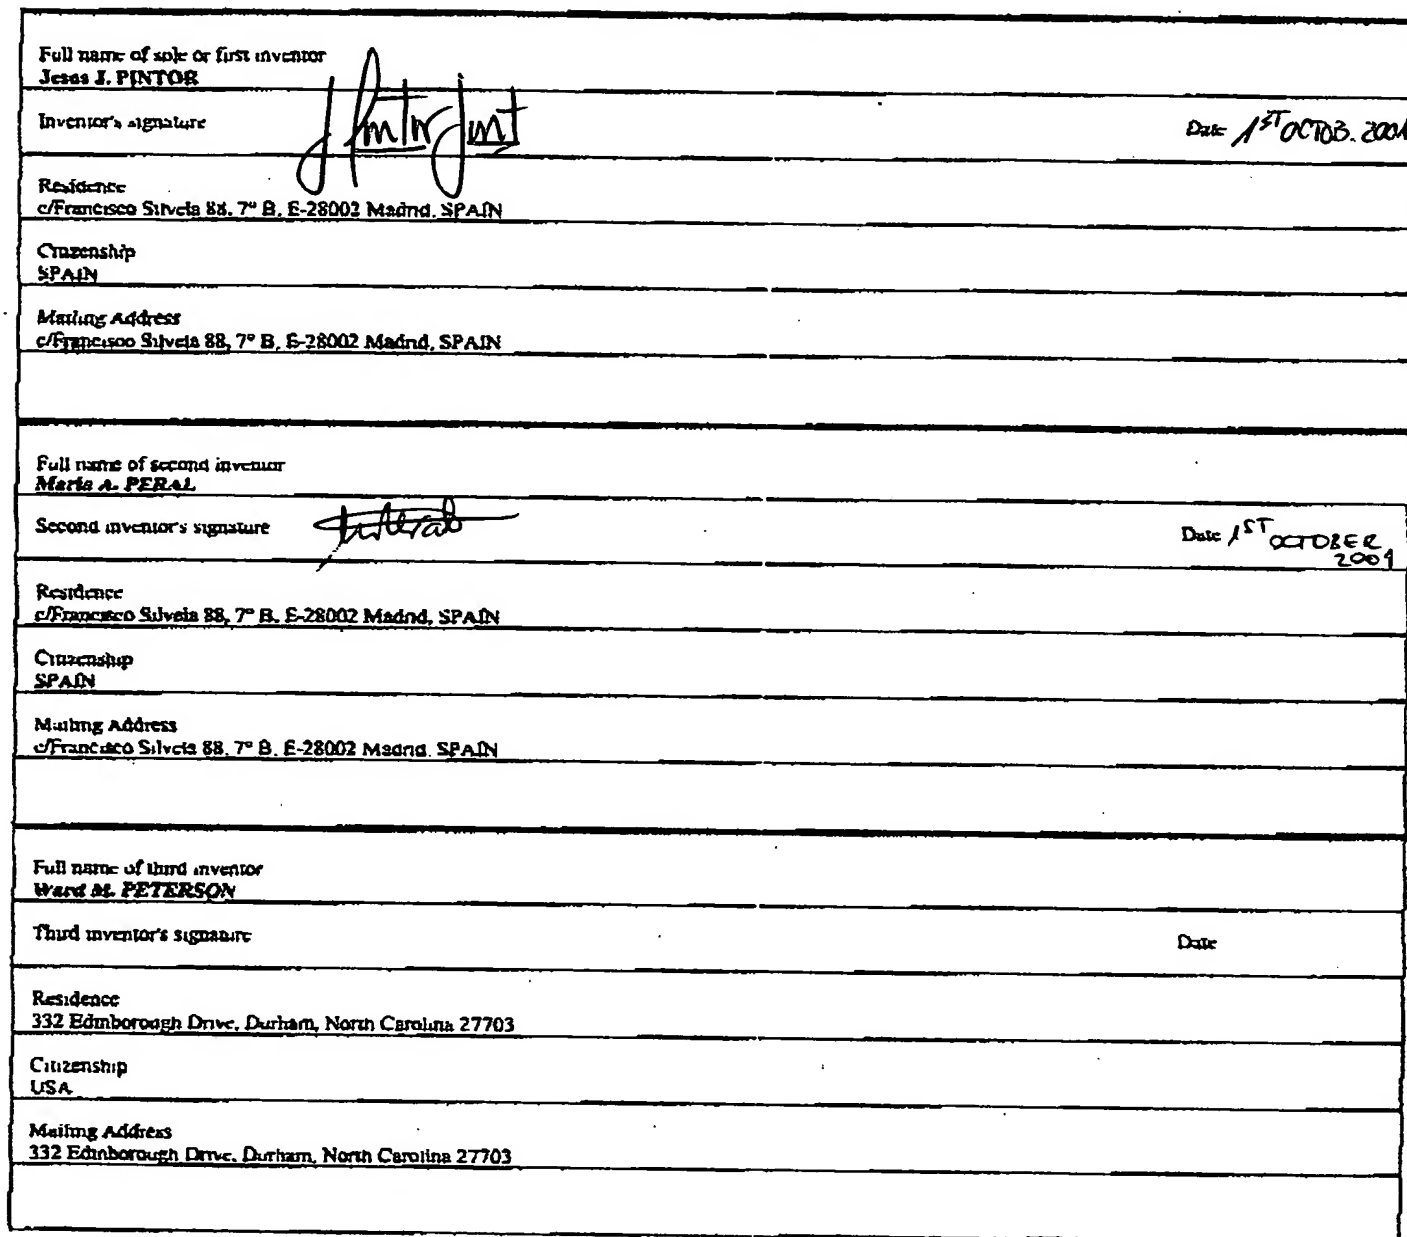 Full name of sole or first inventor
Jesus J. PINTOR
Inventor's signature
Date 1ST OCTOB. 2001
Residence
c/Francisco Silvela 88, 7° B, E-28002 Madrid, SPAIN
Citizenship
SPAIN
Mailing Address
c/Francisco Silvela 88, 7° B, E-28002 Madrid, SPAIN
Full name of second inventor
Maria A. PERAL
Second inventor's signature
Date 1ST OCTOBER
2001
Residence
c/Francisco Silvela 88, 7° B, E-28002 Madrid, SPAIN
Citizenship
SPAIN
Mailing Address
c/Francisco Silvela 88, 7° B, E-28002 Madrid, SPAIN
Full name of third inventor
Ward M. PETERSON
Third inventor's signature
Date
Residence
332 Edinborough Drive, Durham, North Carolina 27703
Citizenship
USA
Mailing Address
332 Edinborough Drive, Durham, North Carolina 27703